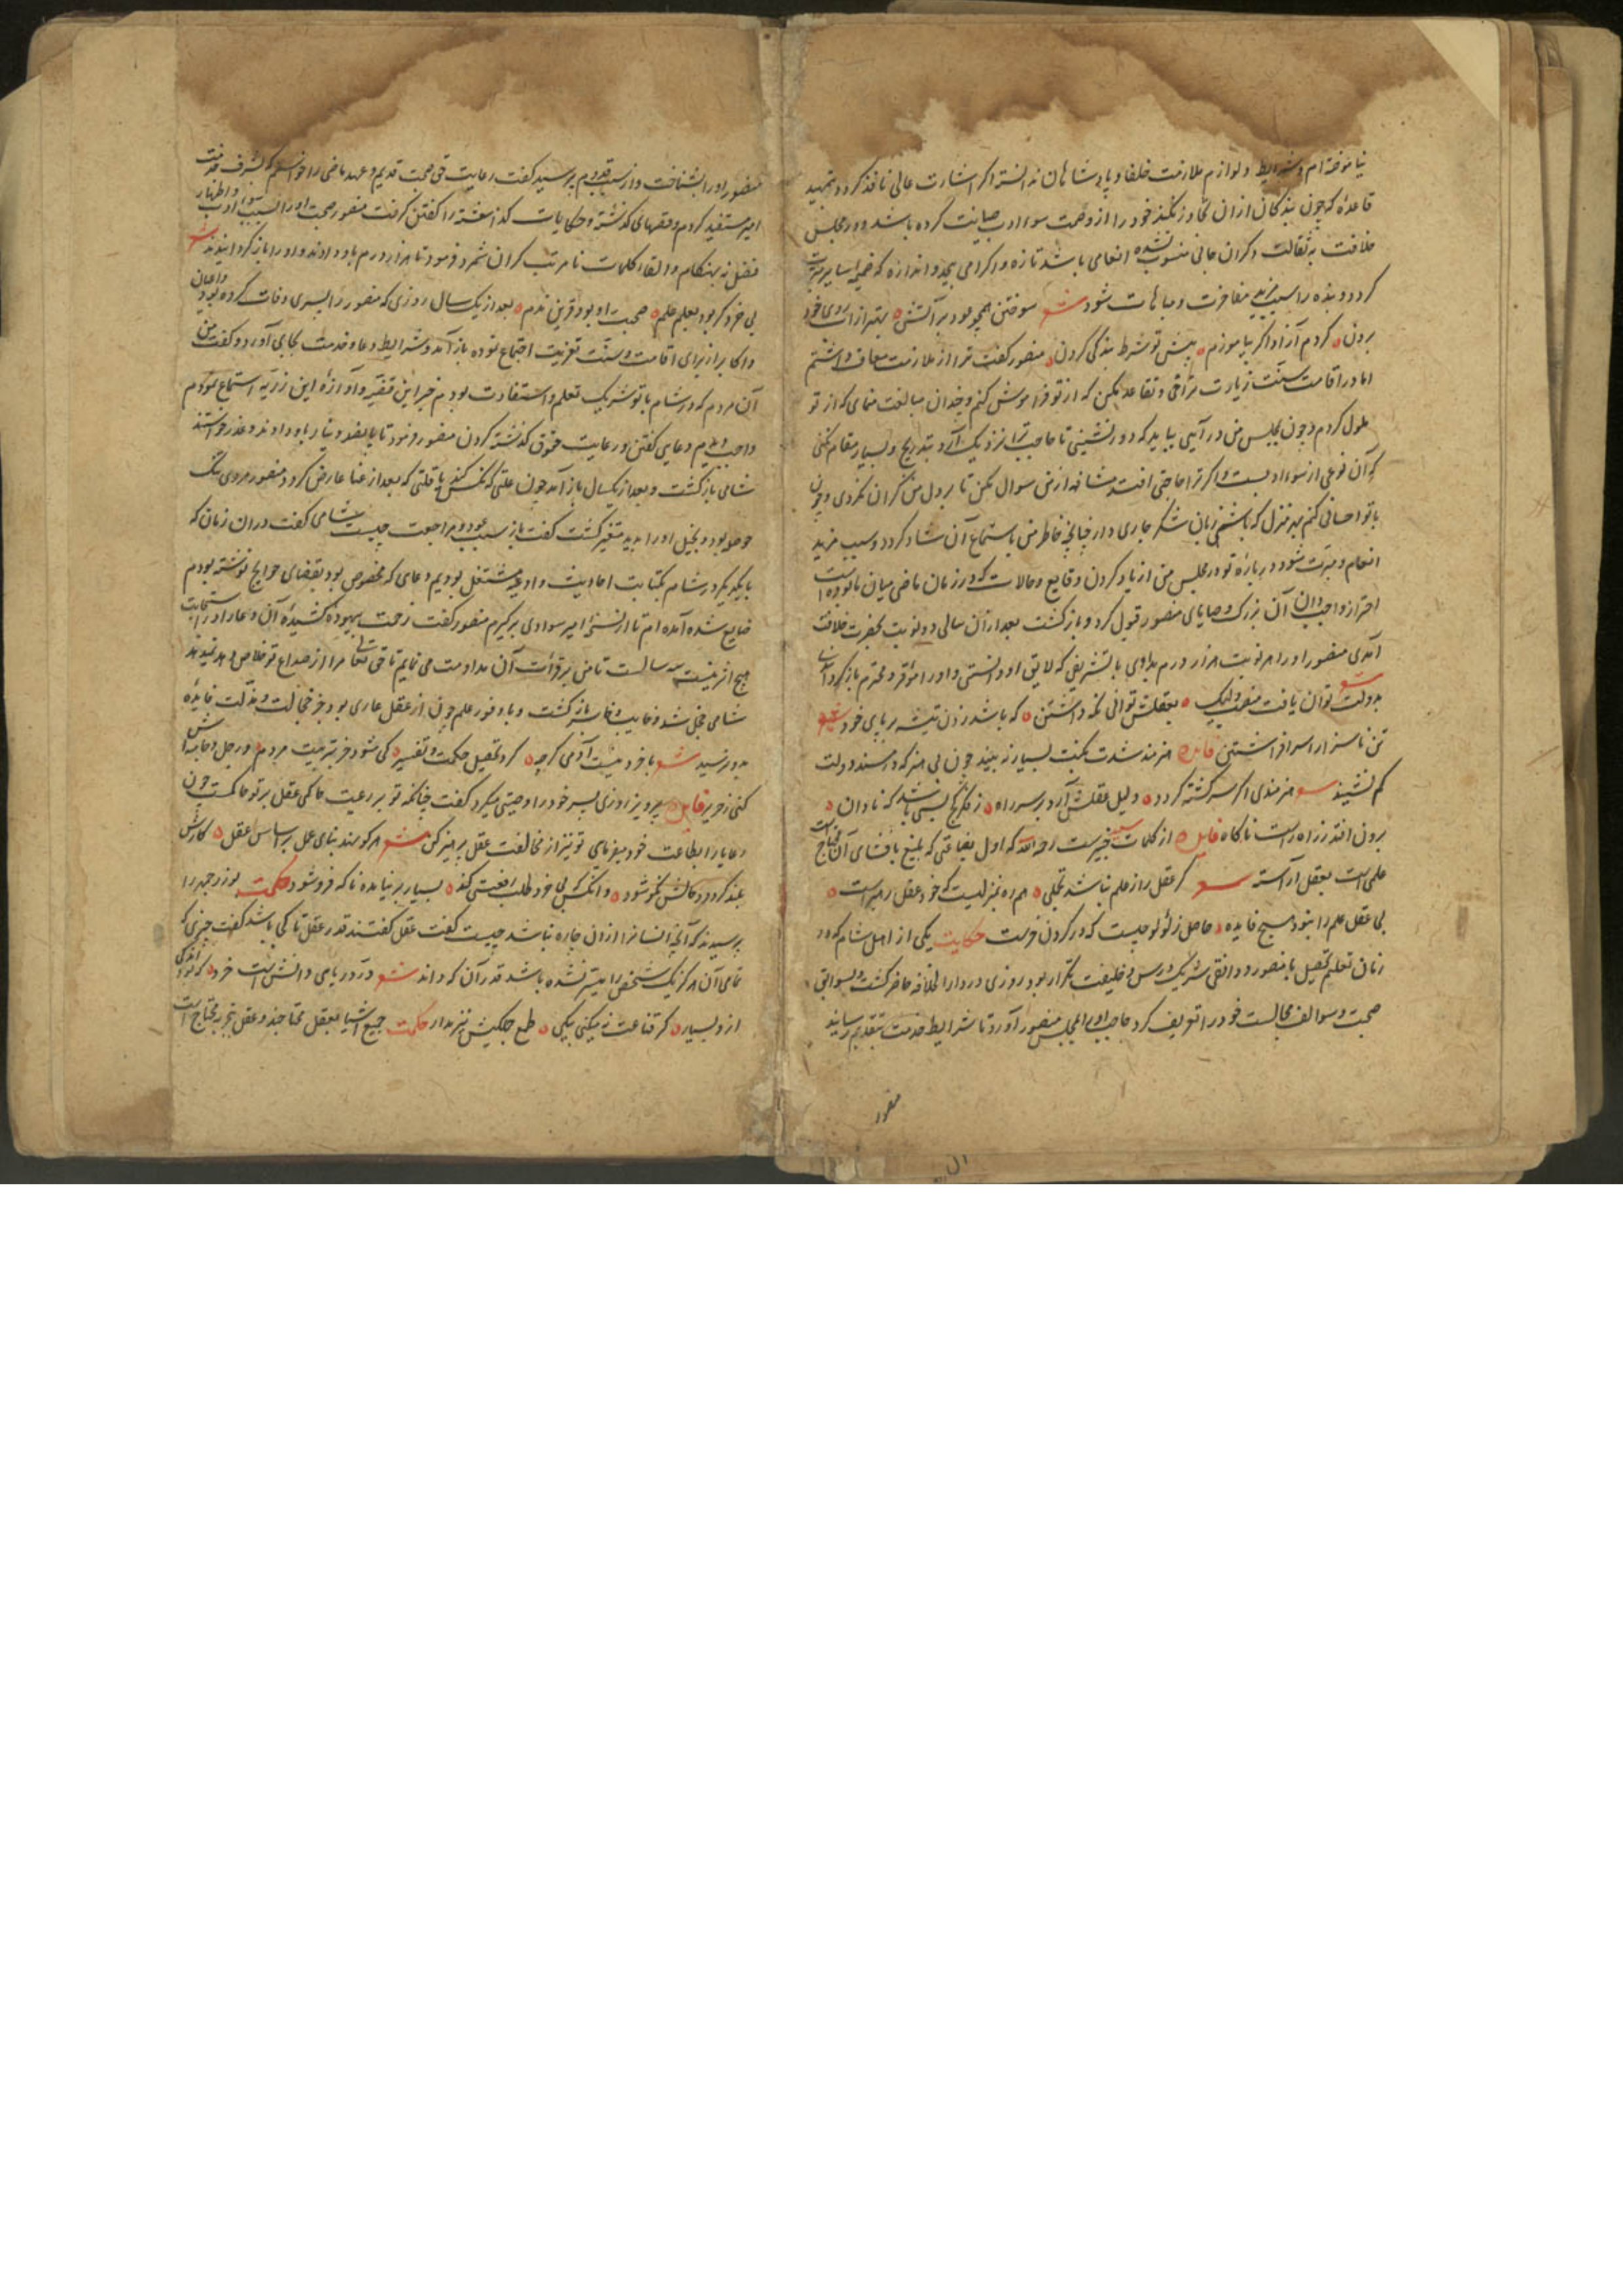 نیاموخته‌ام و شرایط و لوازم ملازمت خلفا و پادشاهان ندانسته اکر اشارت عالی نافذ کردد بتمهید
قاعدهٔ که چون بندکان ازان تجاوز نکنند خود را از وصمت سوء ادب صیانت کرده باشد و در مجلس
خلافت به ثقالت و کران جانی منسوب نشده انعامی باشد تازه و اکرامی بیحد و اندازه که ضمیمه سایر
کردد و بنده را سبب مزید مفاخرت و مباهات شود شعر سوختن همچو عود بر آتش بهتر از آب روی خود
بردن کردم آزاد اکر بیاموزم پیش تو شرط بندکی کردن منصور کفت ترا از ملازمت معاف داشتم
اما در اقامت سنت زیارت تراخی و تقاعد مکن که از تو فراموش کنم و چندان مبالغت منمای که از تو
ملول کردم و چون بمجلس من در آیی بباید که دور نشینی تا حاجب ترا نزدیک آرد بتدریج و بسیار مقام نکنی
که آن نوعی از سوء ادبست و اکر ترا حاجتی افتد مشافهه از من سوال مکن تا بر دل من کران نکردی و چون
با تو احسانی کنم بهر منزل که باشی زبان بشکر جاری دار چنانچه خاطر من باستماع آن شاد کردد و سبب مزید
انعام و مبرت شود در باره تو و در مجلس من از یاد کردن وقایع و حالات که در زمان ماضی میان ما بوده است
احتراز واجب دان آن بزرک وصایای منصور قبول کرد و باز کشت بعد ازان سالی دو نوبت بحضرت خلافت
آمدی منصور او را هر نوبت هزار درم بدادی با تشریفی که لایق او دانستی و او را موقر و محترم باز کردانیدی
بدولت توان یافت منصب ولیک بعقلش توانی نکه داشتن که باشد زدن تیشه بر پای خود شعر
تن ناسزا را سر افراشتن فایده هنرمند شدت نکبت بسیار نه بیند چون بی هنر که در مسند دولت
کم نشیند شعر هنرمندی اکر سرکشته کردد دلیل عقلش آرد بر سر راه ز فکر کج بسی باشد که نادان
برون افتد ز راه راست ناکاه فایده از کلمات خبیر است رحمه الله که اول بضاعتی که تبلیغ بافشای آن محتاج است
علمی است بعقل آراسته شعر کر عقل را ز علم نباشد تجلی همراه نیز نیست که خود عقل رهبر است
بی عقل علم را نبود هیچ فایده حاصل ز لولو چیست که در کردن خر است حکایت یکی از اهل شام که در
زمان تعلیم و تحصیل با منصور دوانقی شریک درس و خلیفت تکرار بود روزی در دار الخلافه حاضر کشت و بسوابق
صحبت و سوالف مجالست خود را تعریف کرد حاجب او را بمجلس منصور آورد تا شرایط خدمت بتقدیم رسانید
منصور
منصور او را بشناخت و از سبب قدوم پرسید کفت رعایت حق صحبت قدیم و عهد ماضی را خواستم که بشرف خدمت
امیر مستفید کردم و قصهای کذشته و حکایات کذاشته را کفتن کرفت منصور صحبت او را بسبب سوء ادب و اظهار
فضل نه بهنکام و القاء کلمات نا مرتب کران شمرد و فرمود تا هزار درم باو دادند و او را باز کردانیدند شعر
بی خرد کر بود بعلم علم صحبت او بود قرین ندم بعد از یک سال روزی که منصور را پسری وفات کرده بود و اعیان
و اکابر از برای اقامت سنت تعزیت اجتماع نموده باز آمد و شرایط دعا و خدمت بجای آورد و کفت من
آن مردم که در شام با تو شریک تعلم و استفادت بودم خبر این قضیه و آوازهٔ این رزیه استماع نمودم
واجب دیدم دعایی کفتن و رعایت حقوق کذشته کردن منصور فرمود تا پانصد دینار باو دادند و عذر خواستند
شامی باز کشت و بعد از یکسال باز آمد چون علتی که نکس کند یا قلتی که بعد از غنا عارض کردد منصور مردی تنک
حوصله بود و بخیل او را بدید متغیر کشت کفت باز سبب عود و مراجعت چیست شامی کفت دران زمان که
با یکدیکر در شام بکتابت احادیث و ادعیه مشتغل بودیم دعای که مخصوص بود بقضای حوایج نوشته بودم
ضایع شده آمده ام تا از نسخهٔ امیر سوادی بر کیرم منصور کفت زحمت بیهوده کشیدهٔ آن دعا را در استجابت
هیچ اثر نیست سه سالست تا من بر قرأت آن مداومت می نمایم تا حق تعالی مرا از صداع تو خلاص دهد نمیدهد
شامی خجل شد و خایب و خاسر باز کشت و با وفور علم چون از عقل عاری بود جز خجالت و مذلت فایدهٔ
بدو نرسید شعر با خرد نیست آدمی کرچه کرد تحصیل حکمت و تفسیر کی شود خر بتربیت مردم ور جل و جامه‌اش
کنی ز حریر فایده پرویز روزی پسر خود را وصیتی میکرد کفت چنانکه تو بر رعیت حاکمی عقل بر تو حاکمست چون
رعایا را بطاعت خود میفرمای تو نیز از مخالفت عقل پرهیز کن شعر هر کو نهد بنای عمل بر اساس عقل کارش
بلند کردد و حالش نکو شود وانکس که بی خرد طلب رفعتی کند بسیار بر نیامده ناکه فرو شود حکمت بوزرجمهر را
پرسیدند که آنچه انسانرا از ان چاره نباشد چیست کفت عقل کفتند قدر عقل تا کی باشد کفت چیزی که
تمامی آن هرکز یک شخص را میسر نشده باشد قدر آن که داند شعر در دریای دانش است خرد که بود اندکی
ازو بسیار کر قناعت نمیکنی بیکی طمع جکیش نیز مدار حکمت جمیع اشیا بعقل محتاجند و عقل بتجربه محتاج است